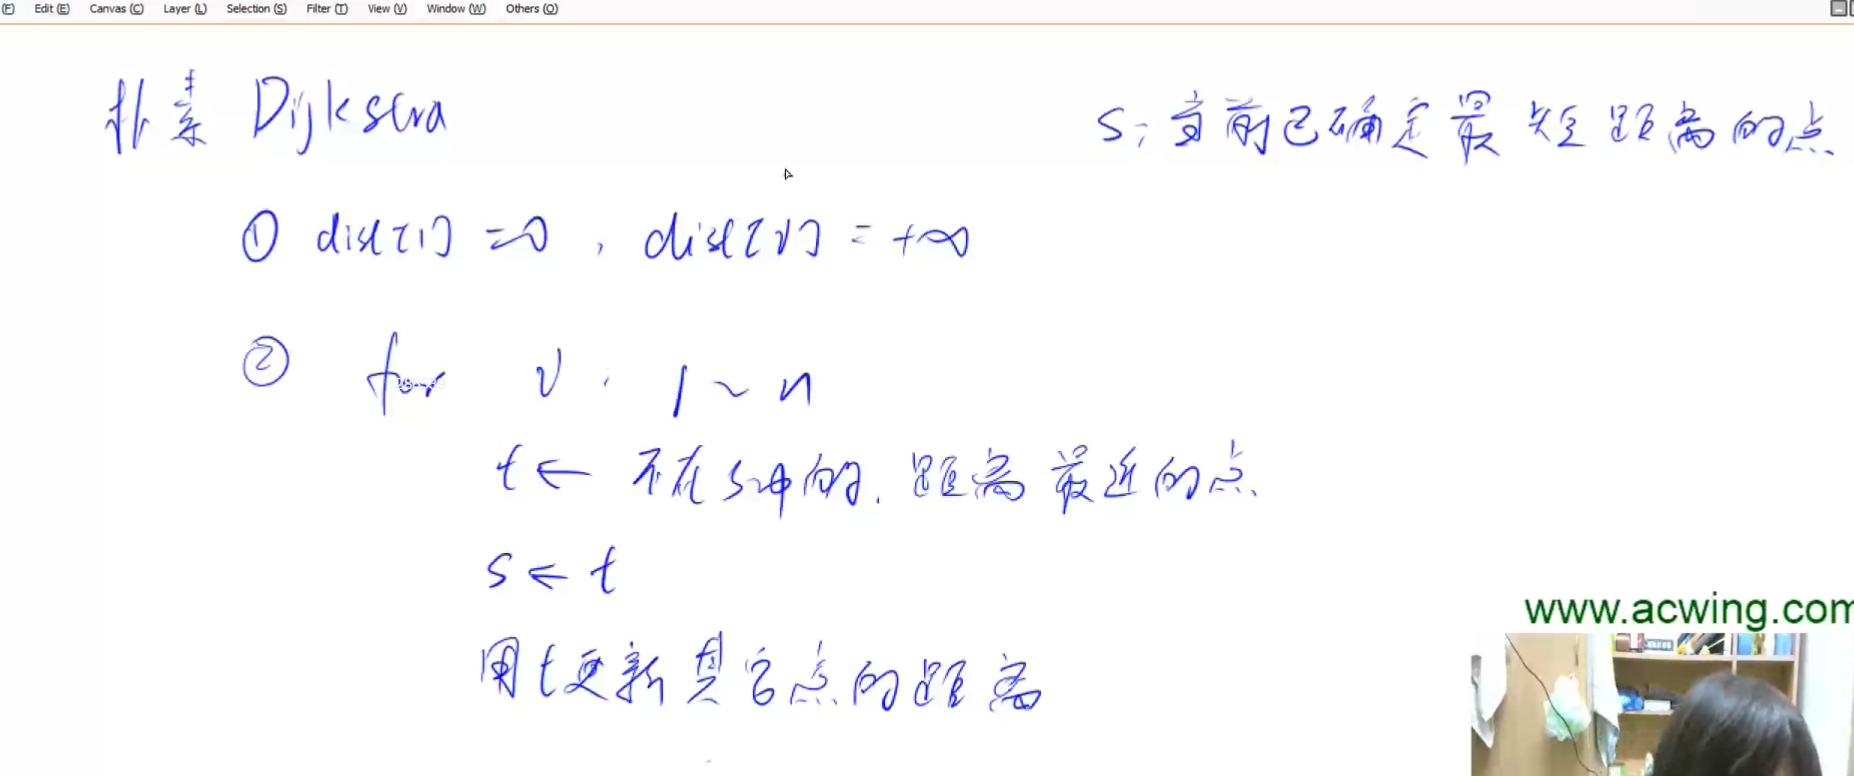 (F) Edit (E) Canvas (C) Layer (L) Selection (S) Filter (T) View (V) Window (W) Others (O)
朴素 Dijkstra
s: 当前已确定最短距离的点
① dist[1] = 0, dist[v] = +∞
② for v: 1 ~ n
t ← 不在s中的, 距离最近的点
s ← t
用t更新其它点的距离
www.acwing.com